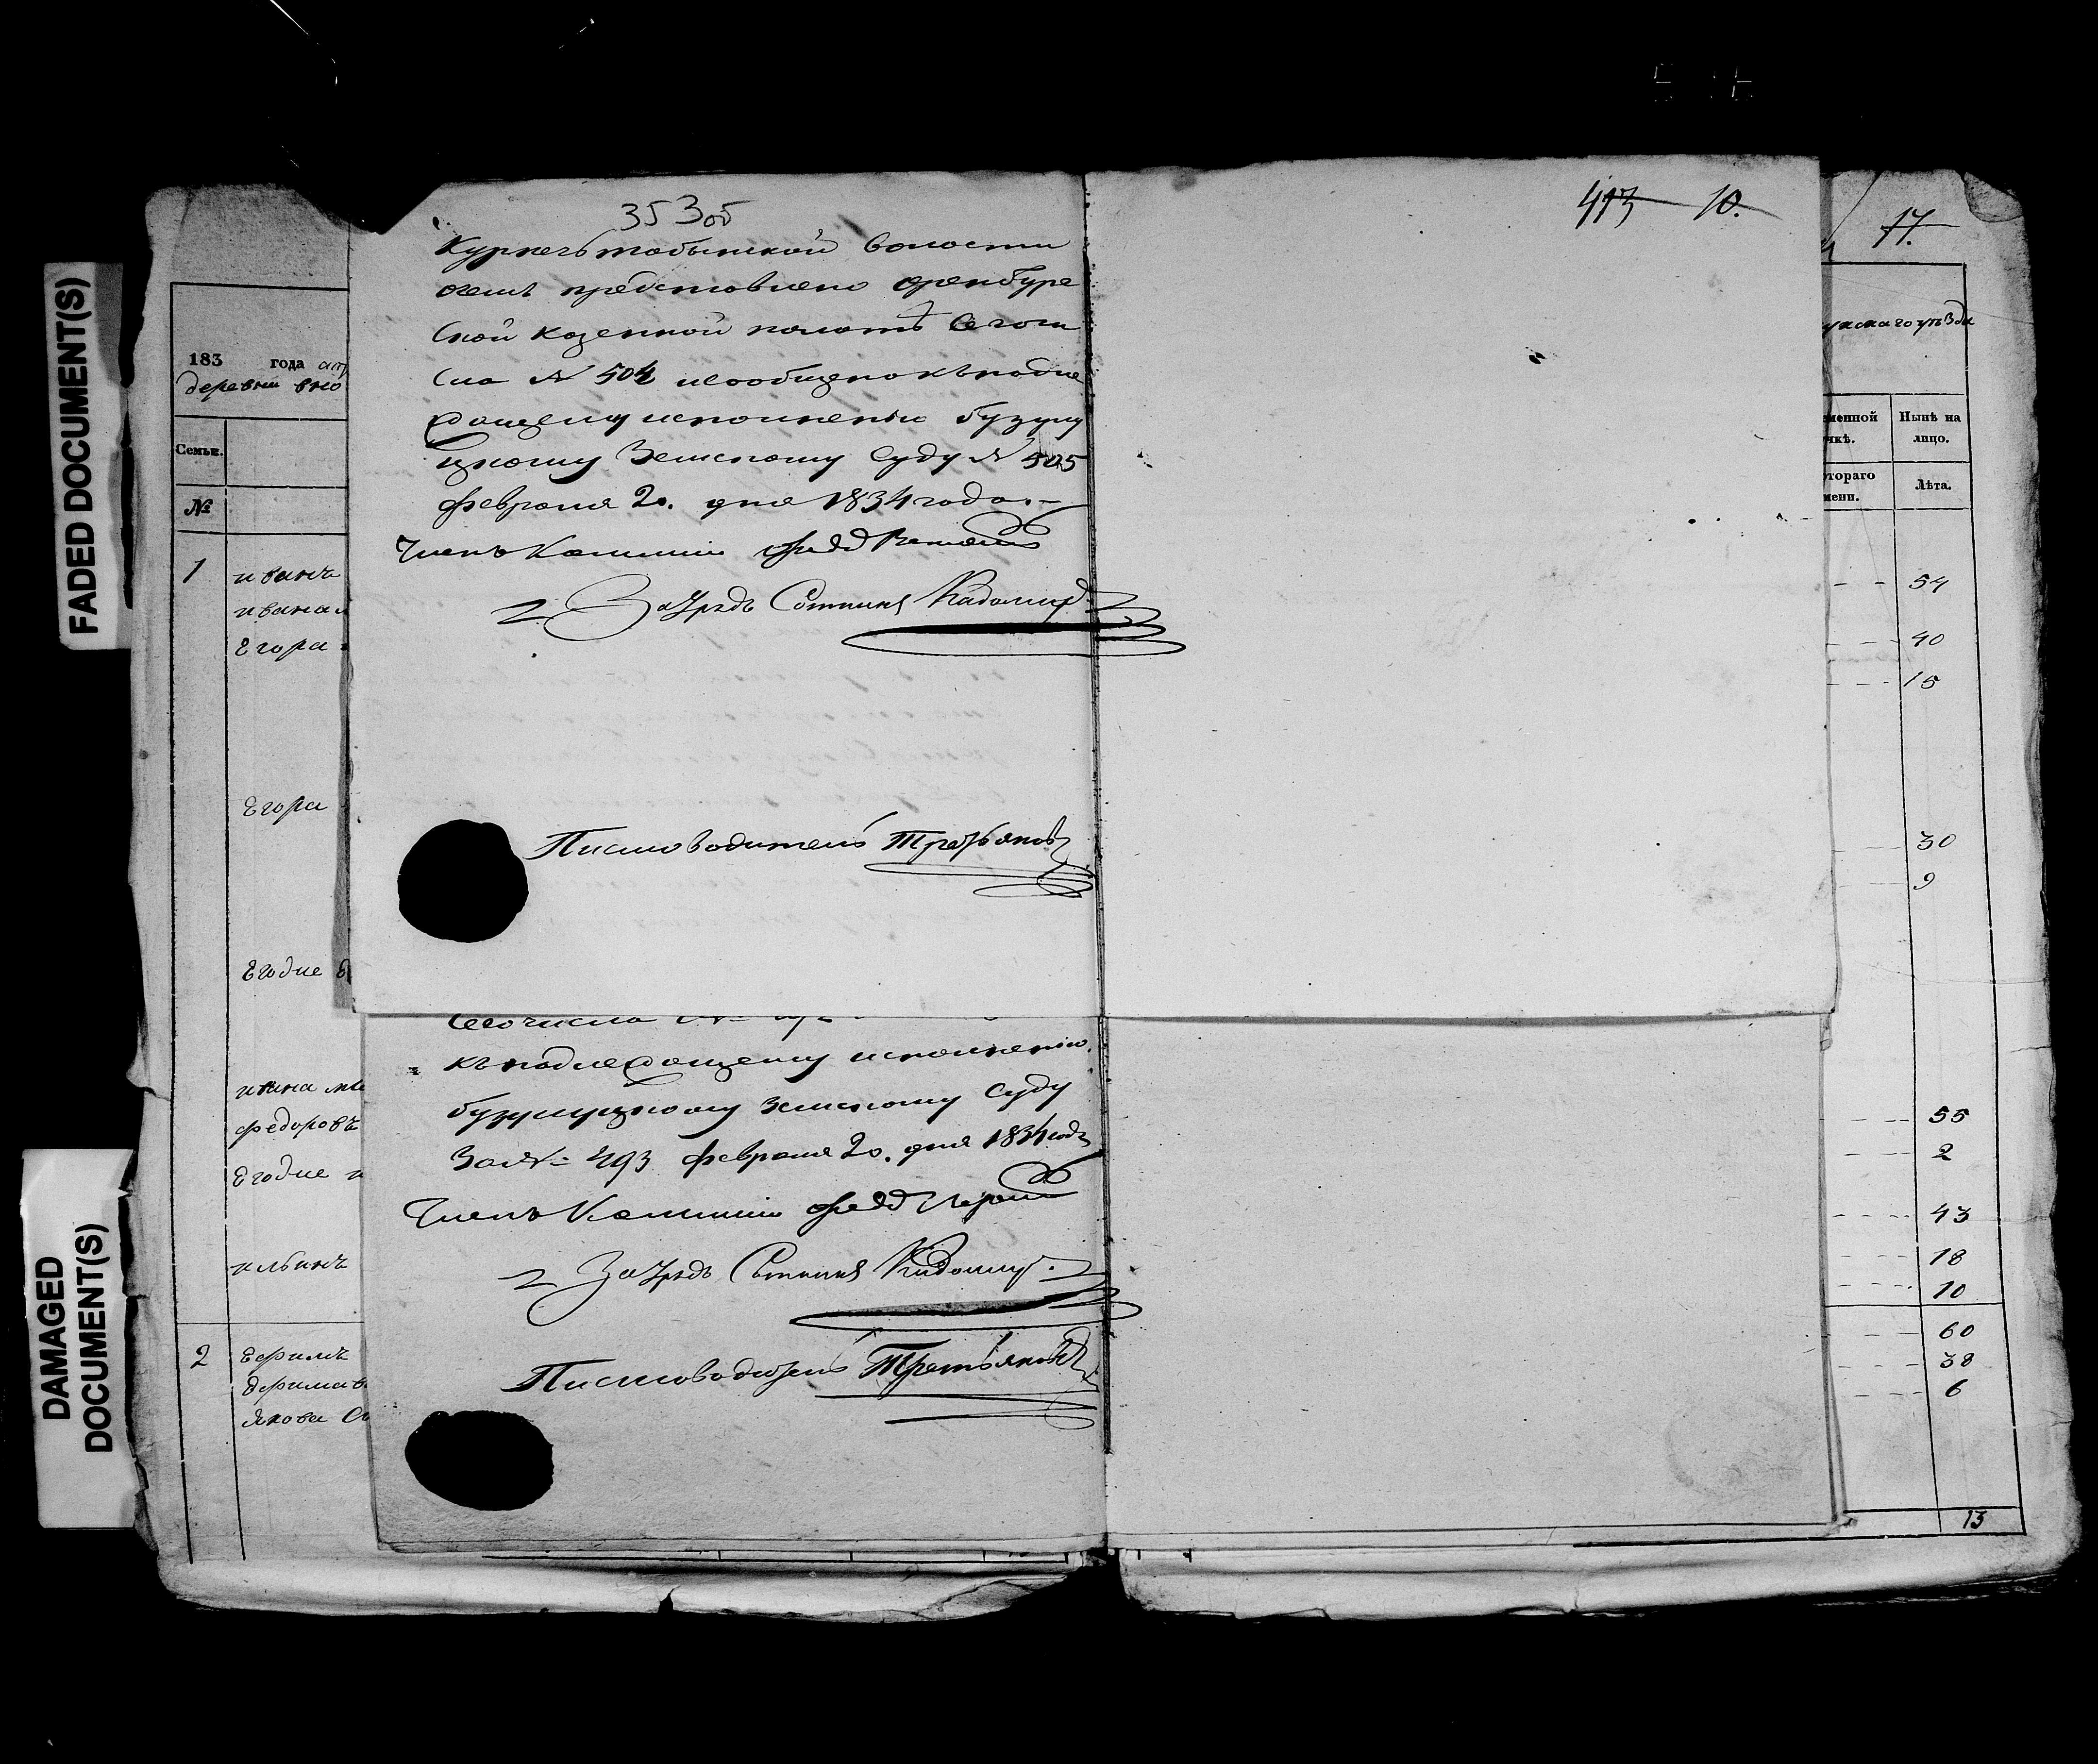 FADED DOCUMENT(S)
DAMAGED DOCUMENT(S)
353об
413 10.
17.
волости
о чемъ представлено оренбург
ской казенной палатѣ сего чи
сла № 504 и сообщено къ подле
жащему исполненію бузулу
цкому Земскому Суду № 505
февраля 20. дня 1834 года.
Членъ Комиссіи
За Урядъ Сотникъ
Писмоводитель Третьяковъ
сего числа №
къ подлежащему исполненію
бузулуцкому земскому суду
За № 493 февраля 20. дня 1834 года
Членъ Комиссіи
За Урядъ Сотникъ
Писмоводитель Третьяковъ
183 года
деревни
Семьи.
№
1 иванъ
ивана
Егора
Егора
Егодне
ивана
федоровъ
Егодне
ильинъ
2 Ефимъ
Якова
уѣзда
менной
Нынѣ на
лицо.
тораго
мени.
Лѣта.
54
40
15
30
9
55
2
43
18
10
60
38
6
13